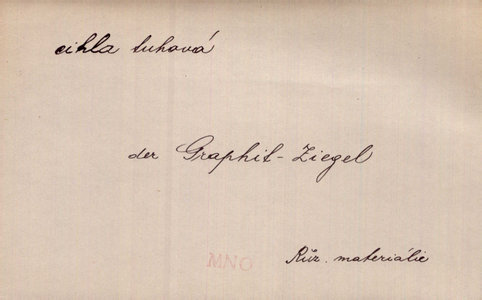 cihla tuhová
der Graphit-Ziegel
MNO
Růz. materiálie